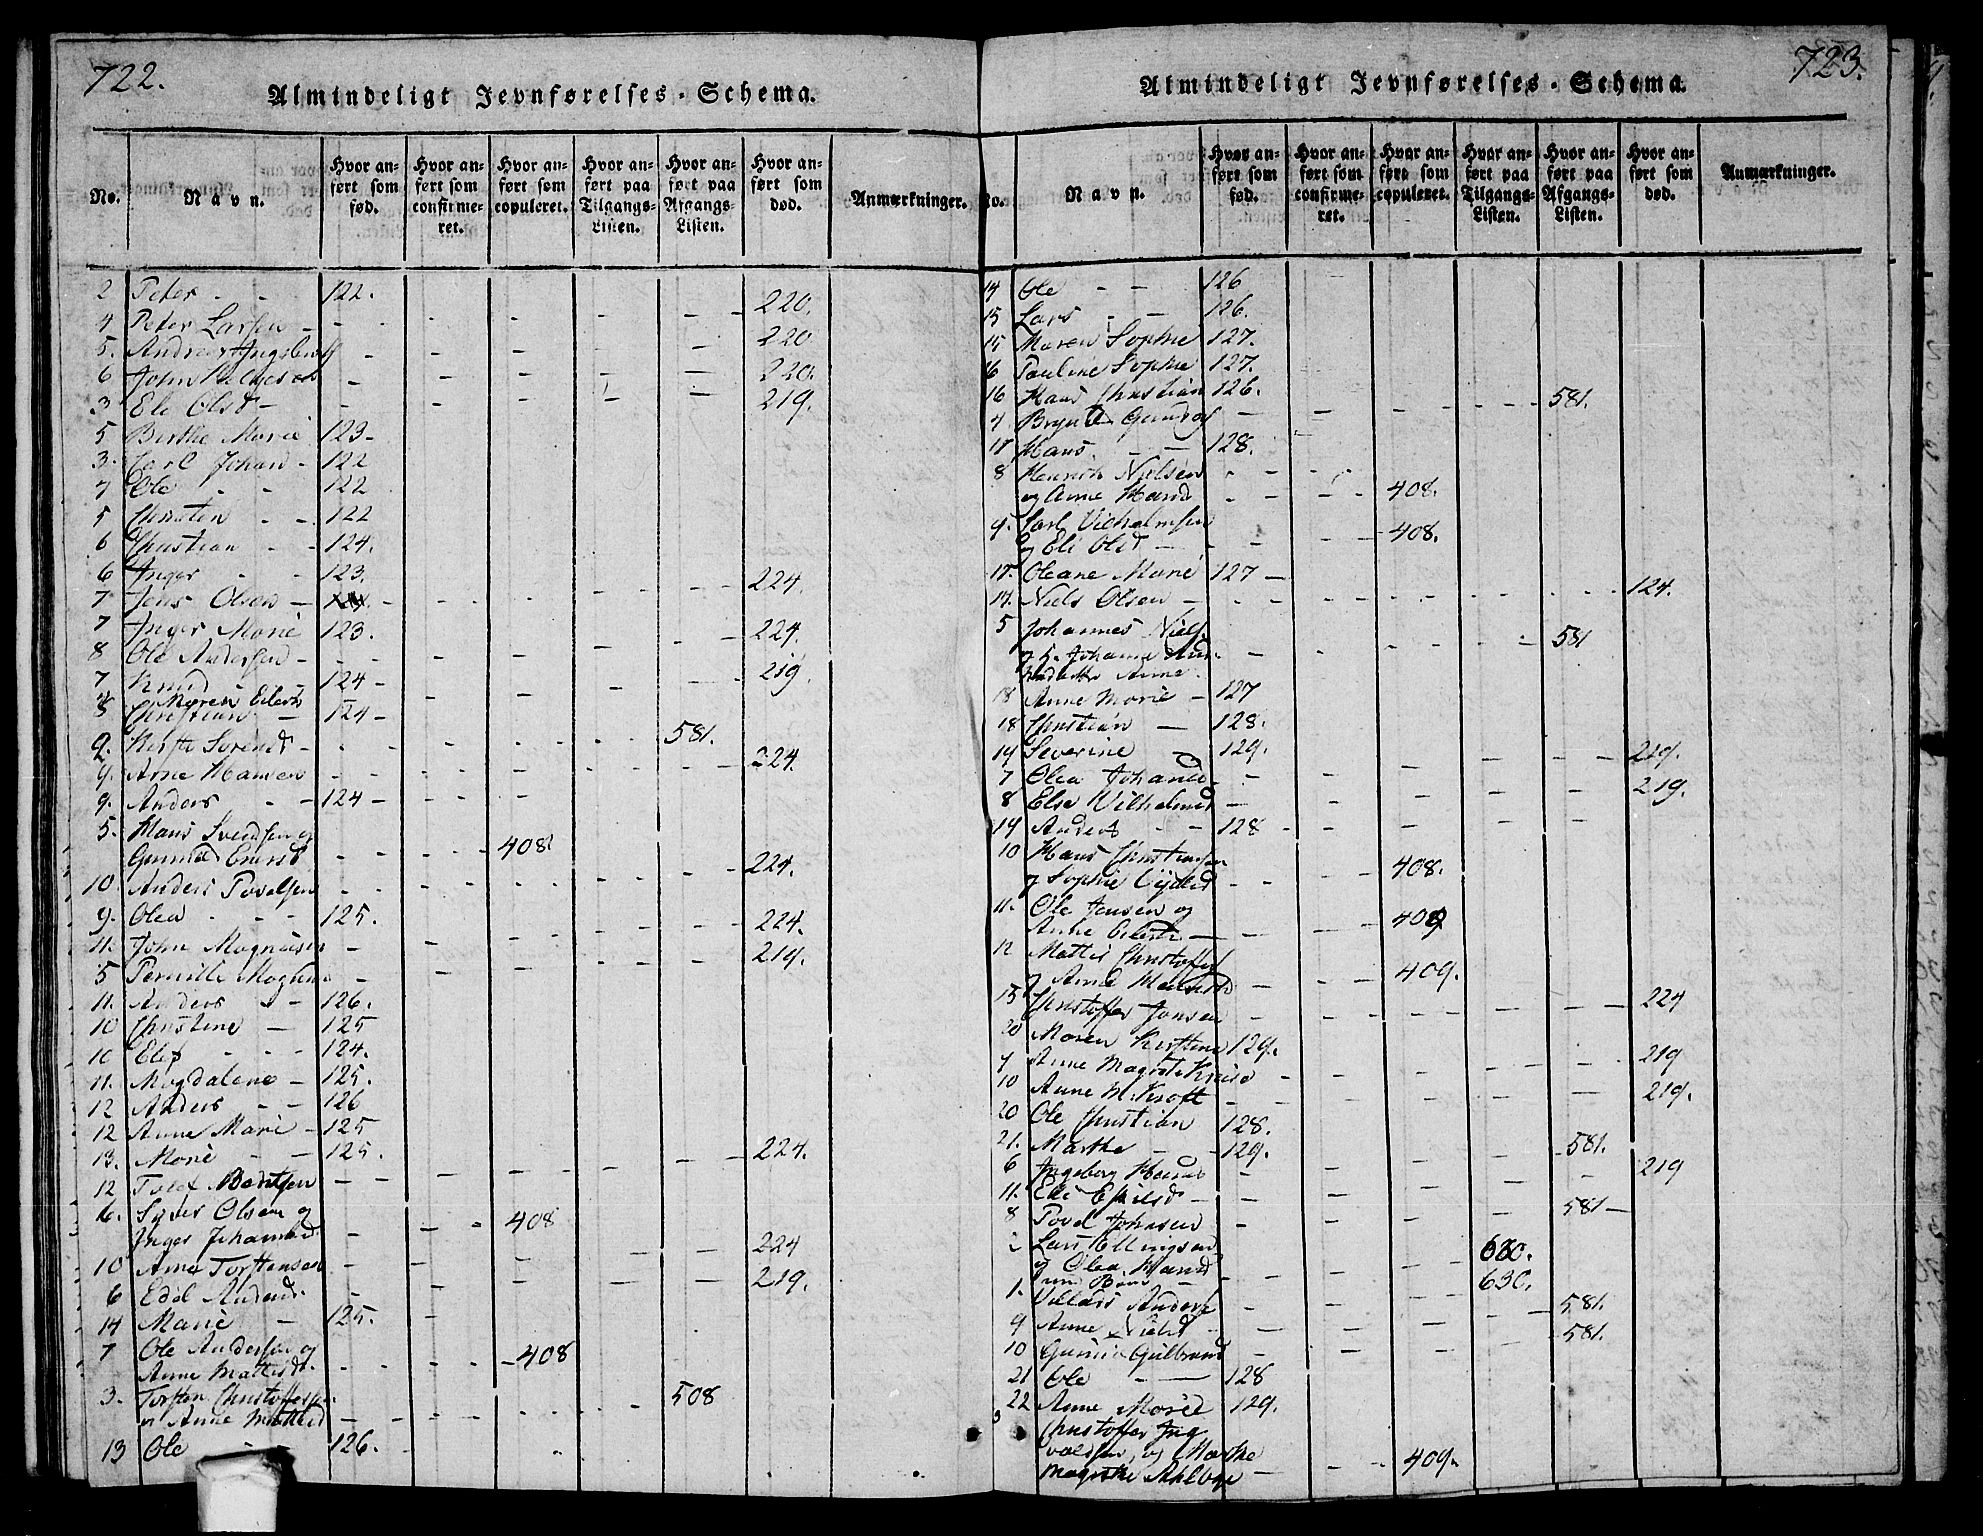 722.
Almindeligt Jevnførelses-Schema.
No.
Navn.
Hvor anført som fød.
Hvor anført som confirmeret.
Hvor anført som copuleret.
Hvor anført paa Tilgangs-Listen.
Hvor anført paa Afgangs-Listen.
Hvor anført som død.
Anmærkninger.
2 Peter - - 122.
4 Peter Larsen - 220.
5. Andreas Ingebr 220
6 John Helgesen 220.
3 Eli Olsd - 219.
5 Berthe Marie 123-
3. Carl Johan - 122
7 Ole - - 122
5 Christen - - 122
6 Christian - - 124.
6 Inger - 123.
7 Jens Olsen - 224.
7 Inger Marie 123.
8 Ole Andersen - 224.
7 Knud - 124-
Maren Eilerts 219.
8 Christian - 124-
9. Kirsti Sørensd - 581.
9. Arne Hansen 224.
9. Anders - - 124-
5. Hans Svendsen og
Gunild Enersd 408
10. Anders Povelsen 224.
9. Olea - - - 125.
11. John Magnusen - 224.
5 Pernille Mogens - 219.
11. Anders - - 126.
10 Christine - 125
10 Elef - - - 124.
11. Magdalene - 125.
12 Anders - - 126
12 Anne Marie - 125
13. Marie - - 125.
12 Tolef Bentsen 224.
6. Syver Olsen og
Inger Johannesd. 408
10 Arne Torstensen 224
6 Edel Andersd. 219.
14 Marie - 125.
7 Ole Andersen og
Anne Mattisd. 408
3. Torsten Christoffersen
og Anne Mattisd 508
13 Ole - 126.
723.
Almindeligt Jevnførelses-Schema.
No.
Navn.
Hvor anført som fød.
Hvor anført som confirmeret.
Hvor anført som copuleret.
Hvor anført paa Tilgangs-Listen.
Hvor anført paa Afgangs-Listen.
Hvor anført som død.
Anmærkninger.
14 Ole - - 126
15 Lars - - 126.
15 Maren Sophie 127.
16 Pauline Sophie 127.
16 Hans Christian 126.
4 581.
17 Hans. - - 128.
8 Henrich Nielsen
og Anne Hansd 408.
9. Carl Vilhelmsen
og Eli Olsd - 408.
17. Oleane Marie 127-
14. Niels Olsen - 124.
5 Johannes Niels
og h. Johanne 581
Anne.
18 Anne Marie - 127
18 Christian - 128.
19 Severine - 129.
7 Olea Johansd 219.
8 Else Vilhelmsd - 219.
19 Anders - - 128 -
10 Hans Christiansen
og Sophie 408.
11. Ole Jensen og
Anne Eilertsd - 409
12 Mattis Christoffers
og Anne 409.
15 Christoffer Jonsen 224
20 Maren Kirstine 129.
9 Anne Magrete 219
10 Anne M. 219.
20 Ole Christian 128.
21. Marthe - - 129.
6 Ingeborg Hansd 581.
11. Eli Eskilsd - 219
8 Povel Johnsen 581-
2 Lars Ellingsen
og Olea Hansd 630.
630.
1. Villads Anders
581.
9 Anne Nielsd 581.
10 Gulbrand
21 Ole - - 128
22 Anne Marie 129.
3 Christoffer Ing
valdsen, og Marthe
Magrethe 409.